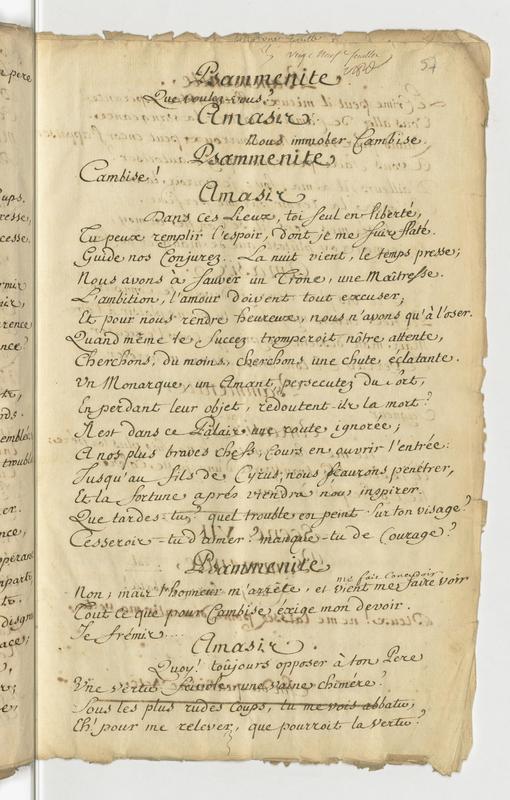 Vingt neuf feuillets
57
Psammenite
Que voulez-vous?
Amasis.
Nous immoler Cambise.
Psammenite
Cambise!
Amasis
Dans ces Lieux, toi seul en liberté,
Tu peux remplir l'espoir, dont je me suis flaté.
Guide nos Conjurez... La nuit vient, le temps presse;
Nous avons à sauver un Trône, une Maîtresse.
L'ambition, l'amour doivent tout excuser;
Et pour nous rendre heureux, nous n'avons qu'à l'oser.
Quand même le succez tromperoit nôtre attente,
Cherchons, du moins, cherchons une chute éclatante.
Un Monarque, un Amant, persecutez du Sort,
En perdant leur objet, redoutent-ils la mort?
Il est dans ce Palais une route ignorée;
A nos plus braves chefs, cours en ouvrir l'entrée:
Jusqu'au fils de Cyrus, nous sçaurons penétrer,
Et la fortune aprés viendra nous inspirer.
Que tardes-tu? quel trouble est peint sur ton visage?
Cesserois-tu d'aimer? manque-tu de Courage?
Psammenite
me fait concevoir
Non; mais l'honneur m'arrête, et vient me faire voir
Tout ce que pour Cambise éxige mon devoir.
Je frémis....
Amasis.
Quoy! toûjours opposer à ton Pere
Une vertu frivole, une vaine chimére?
Sous les plus rudes coups, tu me vois abbatu,
Eh! pour me relever, que pourroit la vertu?